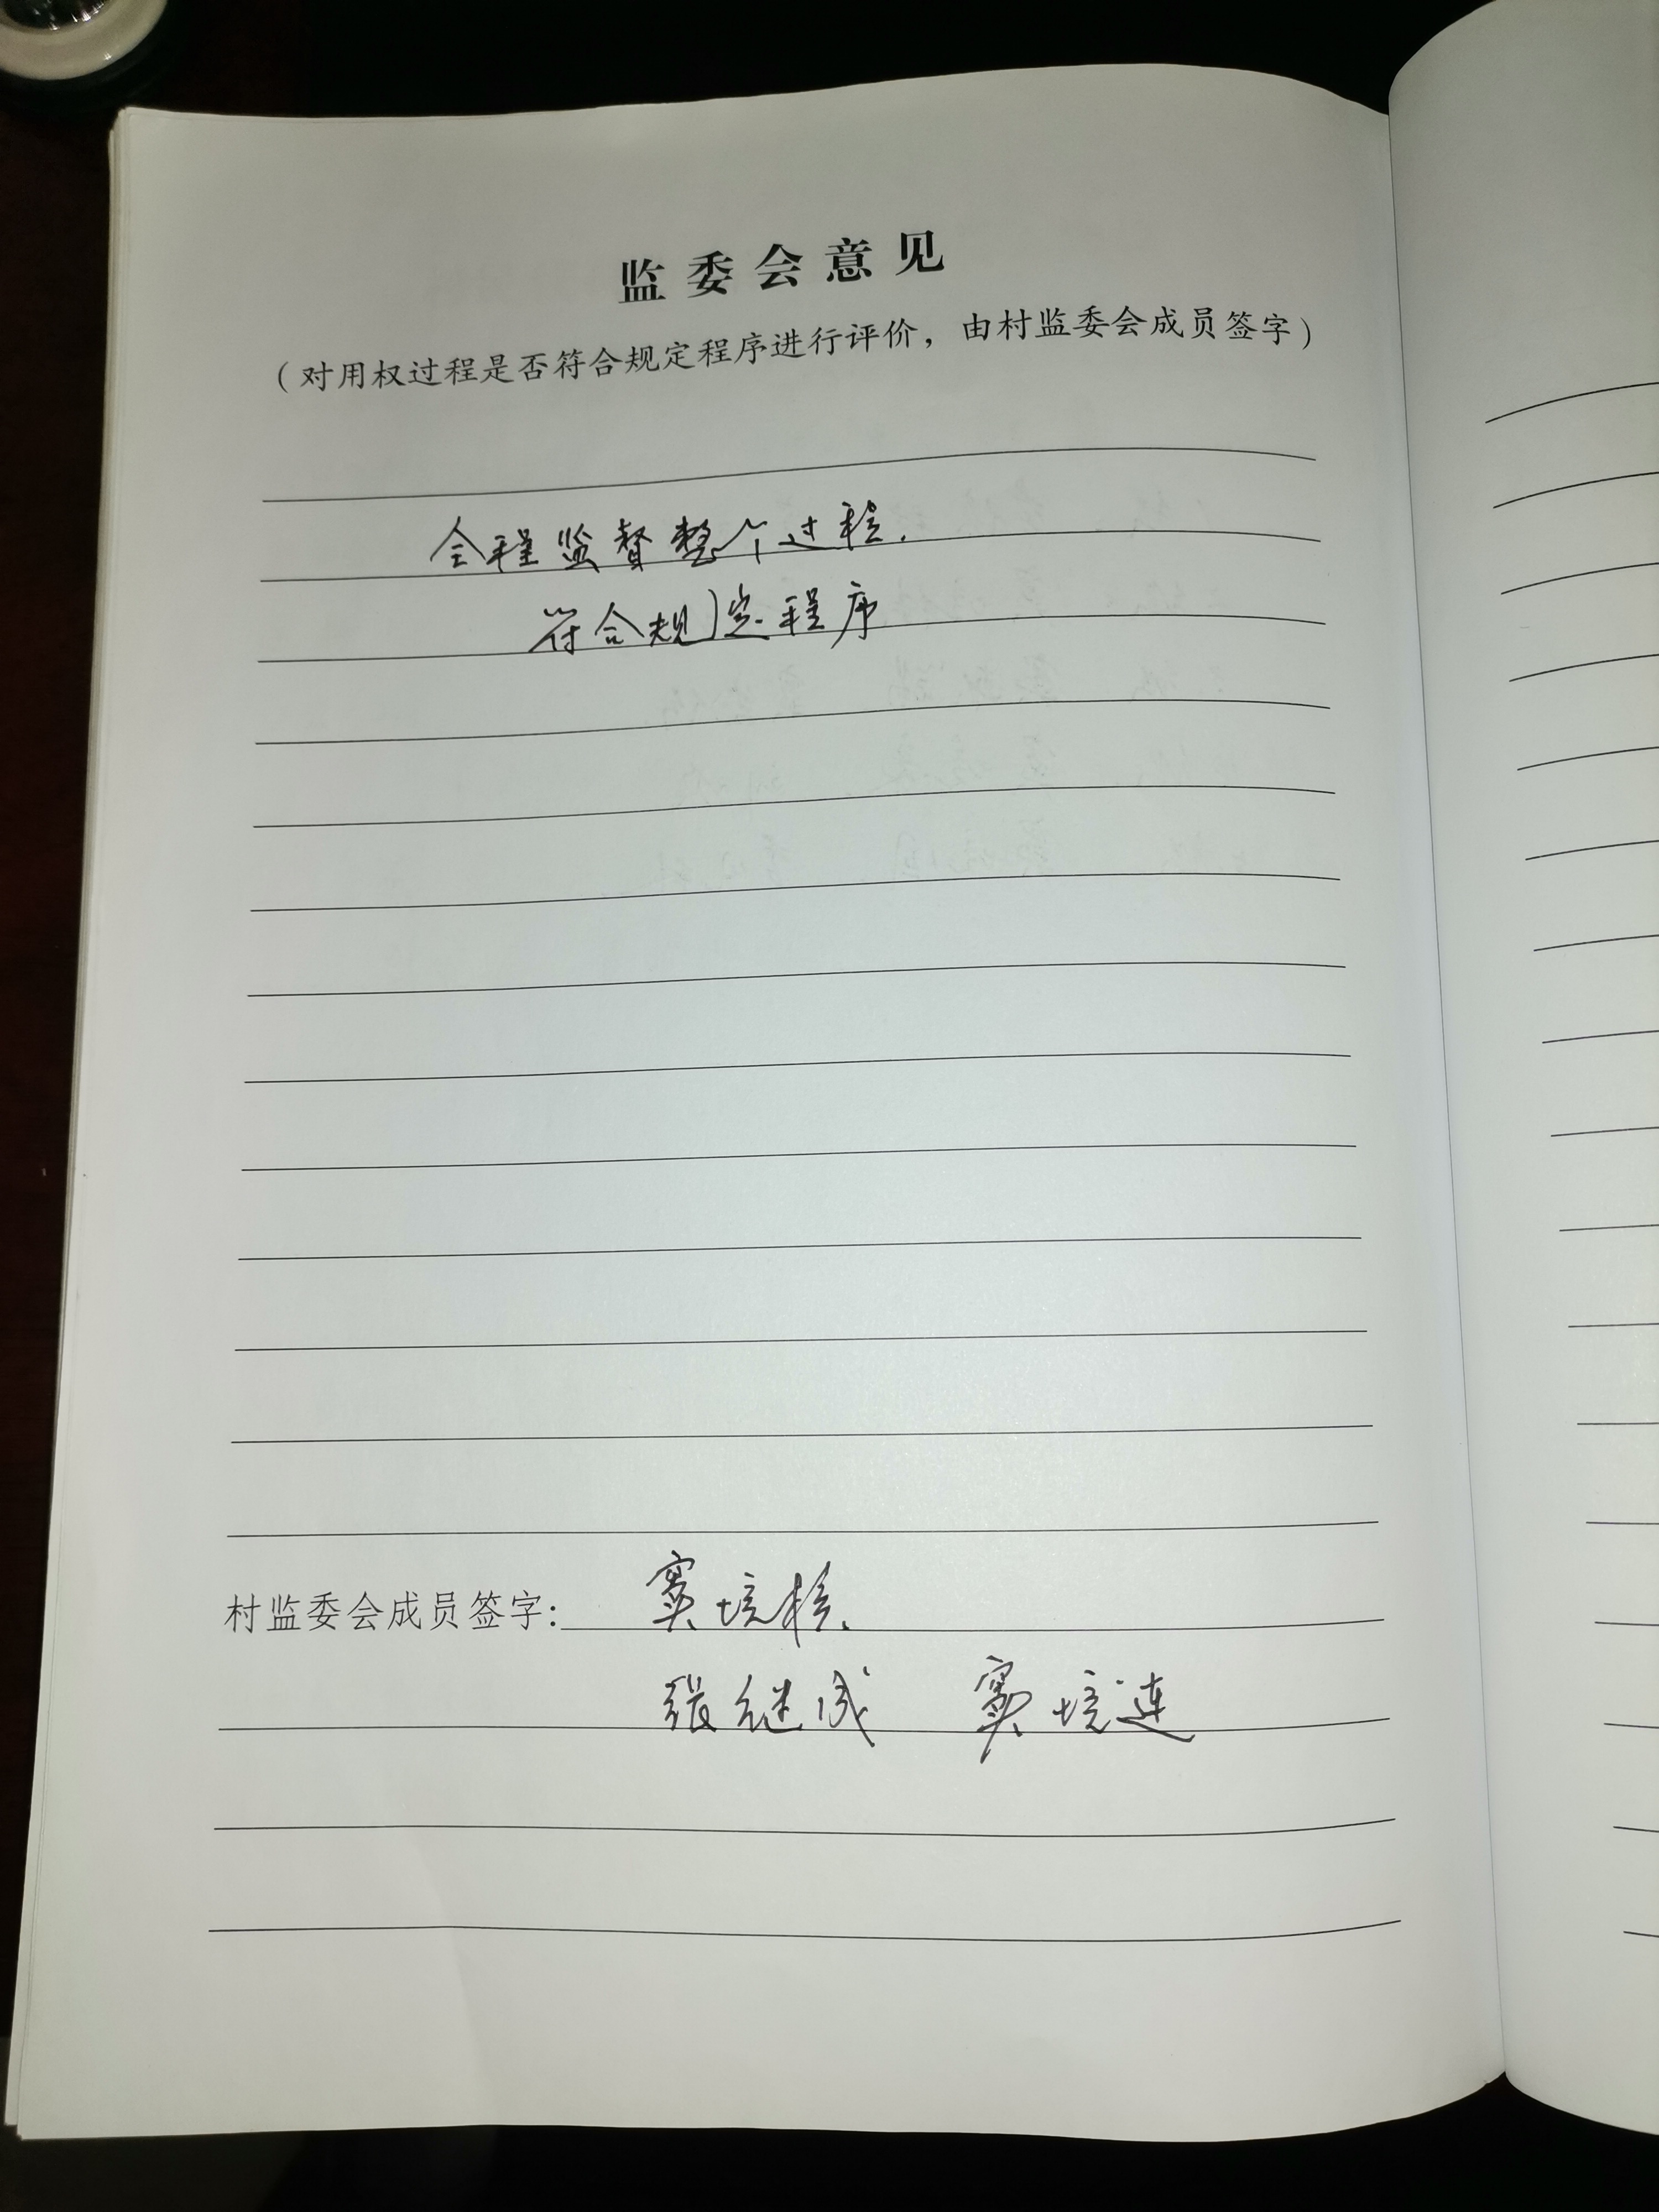 监委会意见
（对用权过程是否符合规定程序进行评价，由村监委会成员签字）
全程监督整个过程.
符合规定程序
村监委会成员签字: 窦培
张继成 窦培连